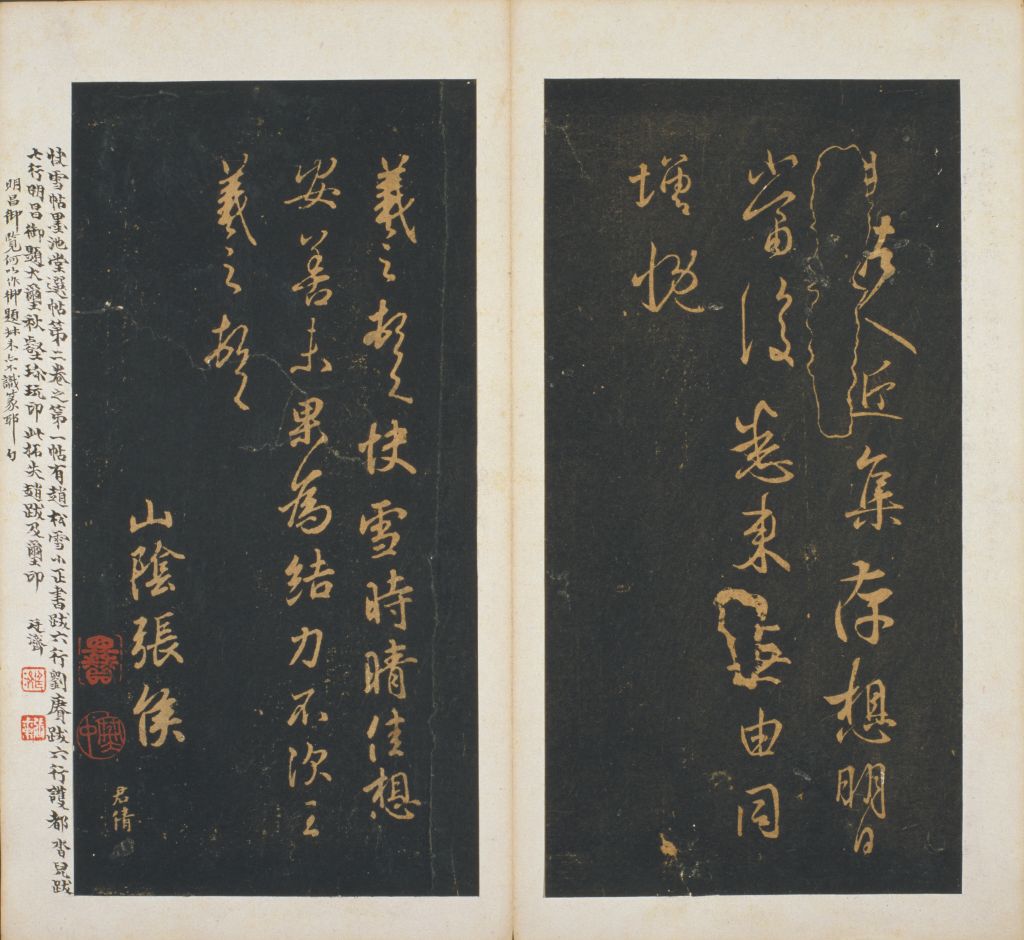 古人近集存想明日
當復悉来無由同
增慨
羲之頓首快雪時晴佳想
安善未果為結力不次王
羲之頓首
山陰張侯
君倩
快雪帖墨池堂選帖第二卷之第一帖有趙松雪小正書跋六行劉賡跋六行護都沓兒跋
七行明昌御題大璽秋壑珍玩印此拓失趙跋及璽印 廷濟
明昌御覽何以作御題